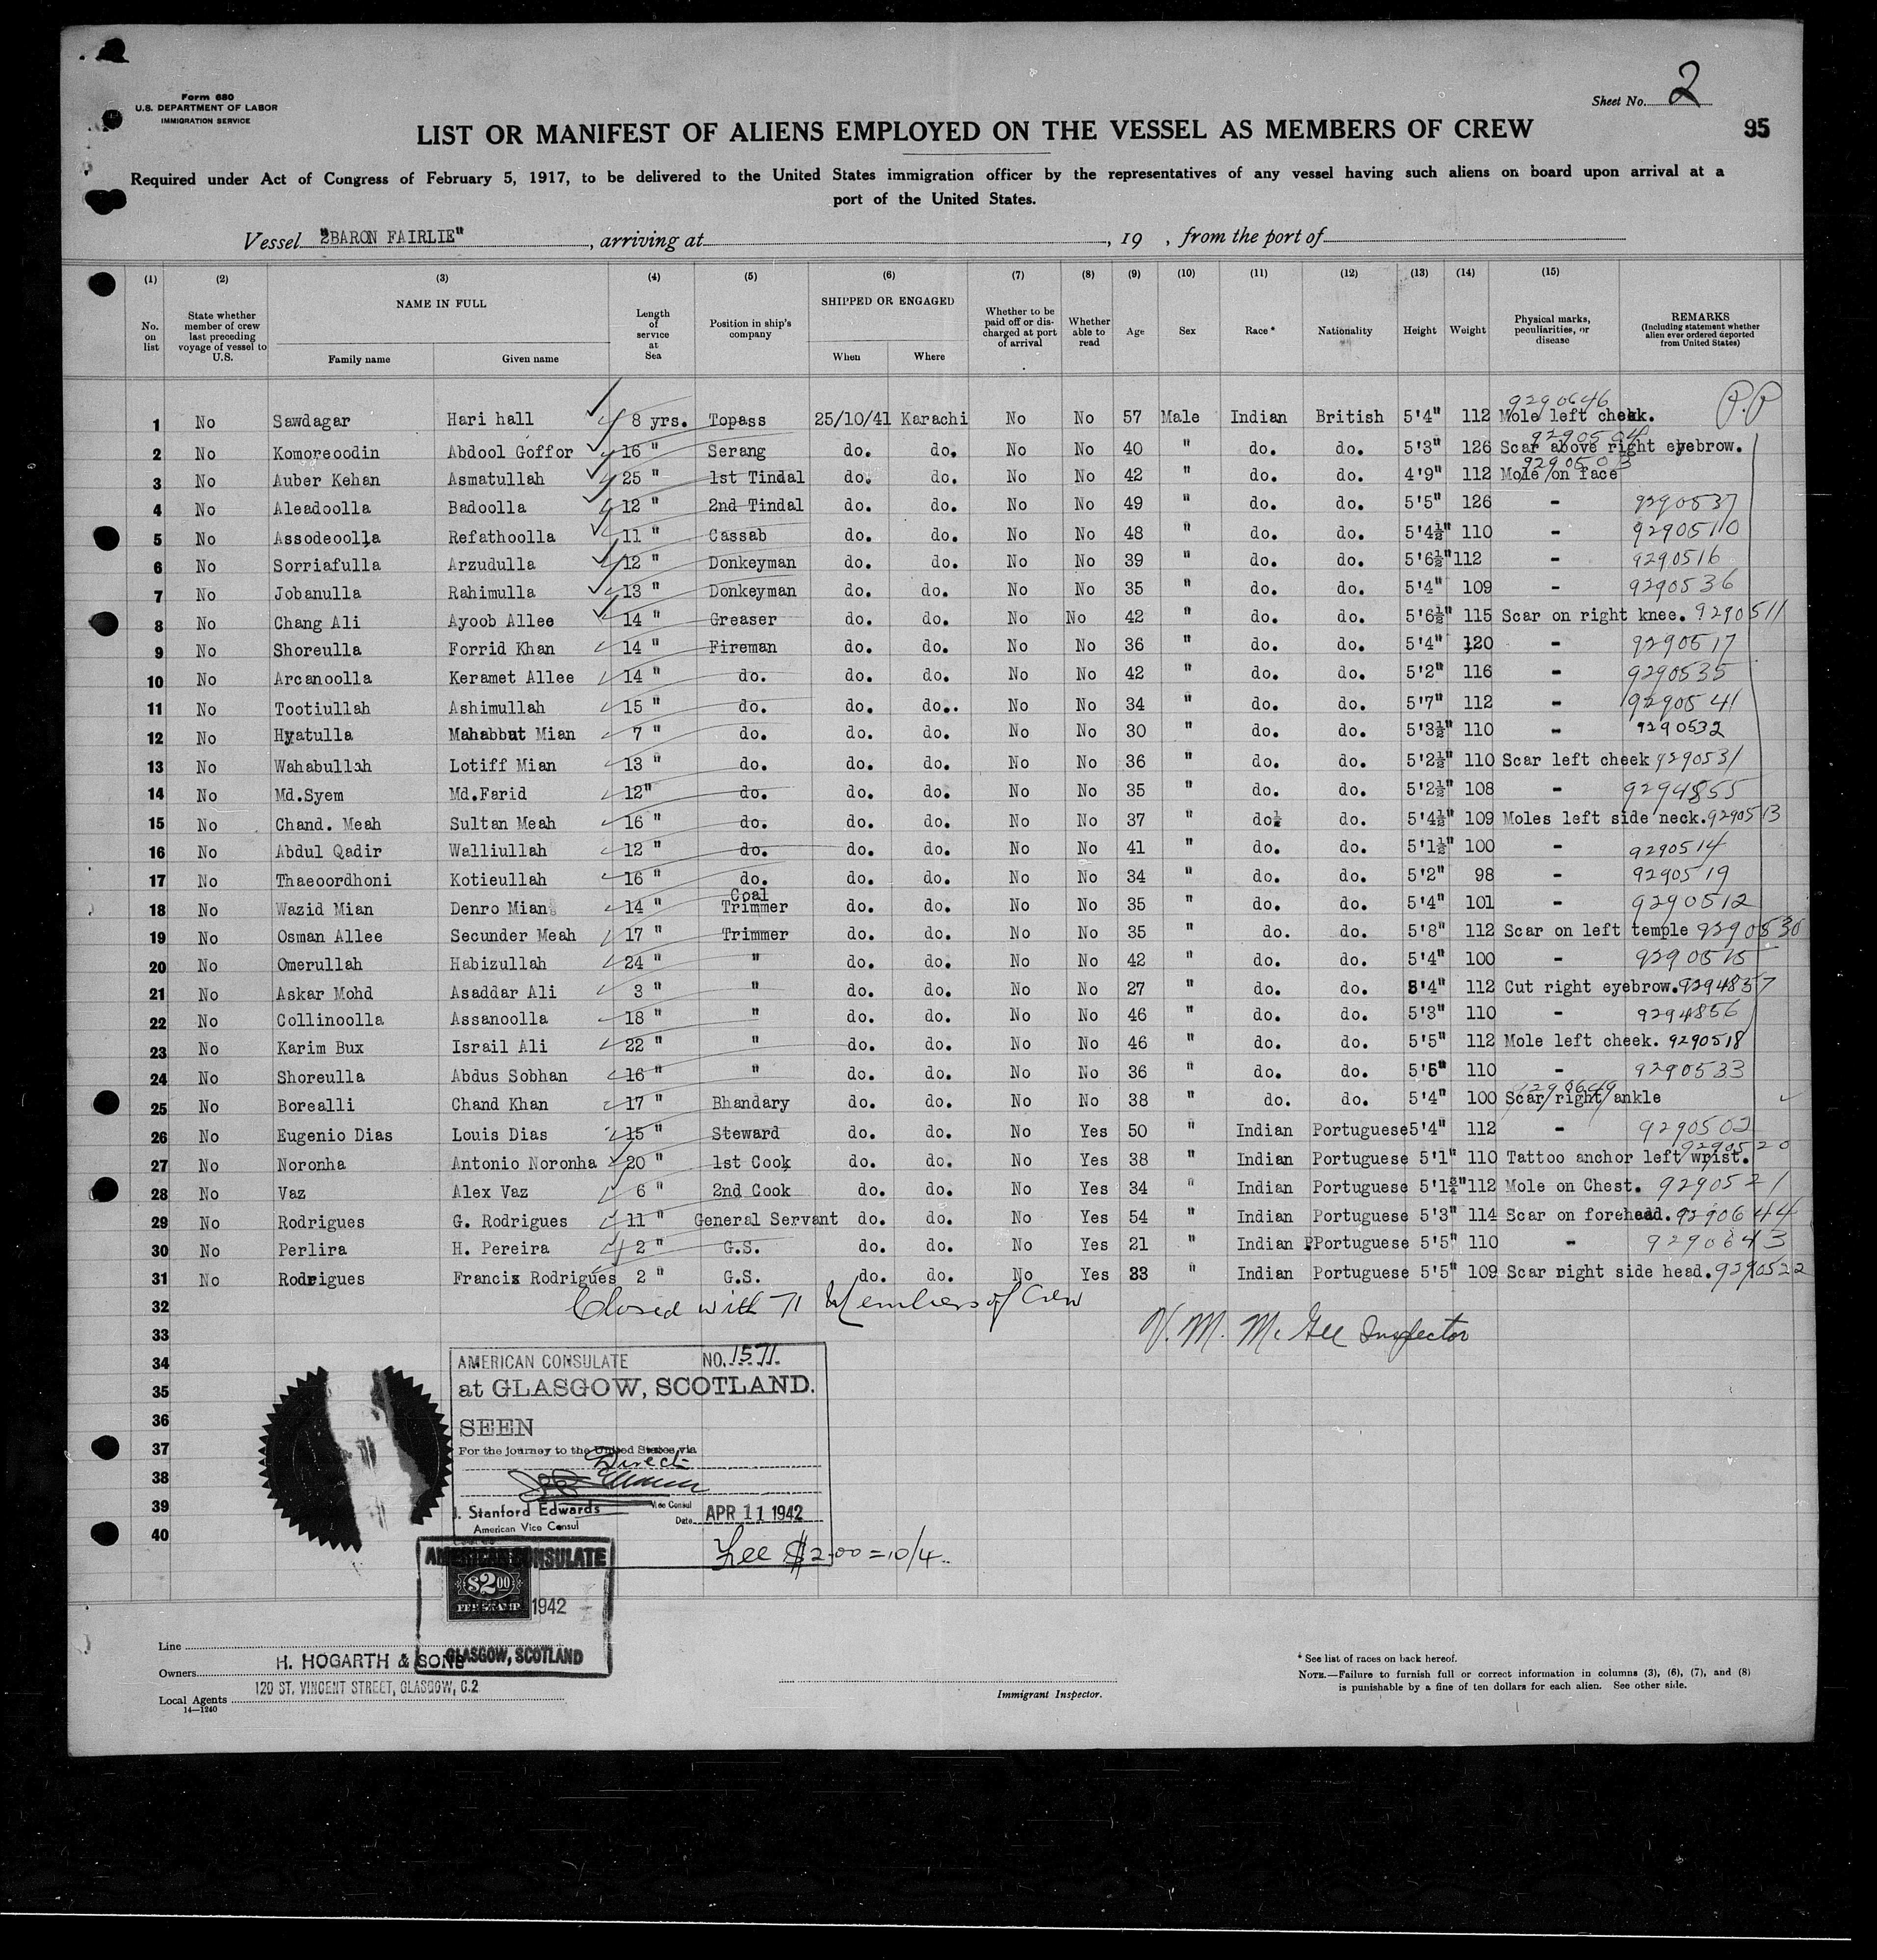 Form 680
U.S. DEPARTMENT OF LABOR
IMMIGRATION SERVICE
Sheet No. 2
LIST OR MANIFEST OF ALIENS EMPLOYED ON THE VESSEL AS MEMBERS OF CREW
95
Required under Act of Congress of February 5, 1917, to be delivered to the United States immigration officer by the representatives of any vessel having such aliens on board upon arrival at a
port of the United States.
Vessel "BARON FAIRLIE", arriving at , 19 , from the port of
(1) (2) (3) (4) (5) (6) (7) (8) (9) (10) (11) (12) (13) (14) (15)
No. on list
State whether member of crew last preceding voyage of vessel to U.S.
NAME IN FULL
Family name Given name
Length of service at Sea
Position in ship's company
SHIPPED OR ENGAGED
When Where
Whether to be paid off or discharged at port of arrival
Whether able to read
Age
Sex
Race *
Nationality
Height
Weight
Physical marks, peculiarities, or disease
REMARKS
(Including statement whether alien ever ordered deported from United States)
P.P
1 No Sawdagar Hari hall 8 yrs. Topass 25/10/41 Karachi No No 57 Male Indian British 5'4" 112 Mole left cheek. 9290646
2 No Komoreoodin Abdool Goffor 16 " Serang do. do. No No 40 " do. do. 5'3" 126 Scar above right eyebrow. 9290504
3 No Auber Kehan Asmatullah 25 " 1st Tindal do. do. No No 42 " do. do. 4'9" 112 Mole on face 9290503
4 No Aleadoolla Badoolla 12 " 2nd Tindal do. do. No No 49 " do. do. 5'5" 126 - 9290537
5 No Assodeoolla Refathoolla 11 " Cassab do. do. No No 48 " do. do. 5'4½" 110 - 9290510
6 No Sorriafulla Arzudulla 12 " Donkeyman do. do. No No 39 " do. do. 5'6½" 112 - 9290516
7 No Jobanulla Rahimulla 13 " Donkeyman do. do. No No 35 " do. do. 5'4" 109 - 9290536
8 No Chang Ali Ayoob Allee 14 " Greaser do. do. No No 42 " do. do. 5'6½" 115 Scar on right knee. 9290511
9 No Shoreulla Forrid Khan 14 " Fireman do. do. No No 36 " do. do. 5'4" 120 - 9290517
10 No Arcanoolla Keramet Allee 14 " do. do. do. No No 42 " do. do. 5'2" 116 - 9290535
11 No Tootiullah Ashimullah 15 " do. do. do.. No No 34 " do. do. 5'7" 112 - 9290541
12 No Hyatulla Mahabbut Mian 7 " do. do. do. No No 30 " do. do. 5'3½" 110 - 9290532
13 No Wahabullah Lotiff Mian 13 " do. do. do. No No 36 " do. do. 5'2½" 110 Scar left cheek 9290531
14 No Md.Syem Md.Farid 12" do. do. do. No No 35 " do. do. 5'2½" 108 - 9294855
15 No Chand. Meah Sultan Meah 16 " do. do. do. No No 37 " do. do. 5'4½" 109 Moles left side neck. 9290513
16 No Abdul Qadir Walliullah 12 " do. do. do. No No 41 " do. do. 5'1½" 100 - 9290514
17 No Thaeoordhoni Kotieullah 16 " do. do. do. No No 34 " do. do. 5'2" 98 - 9290519
18 No Wazid Mian Denro Mian 14 " Coal Trimmer do. do. No No 35 " do. do. 5'4" 101 - 9290512
19 No Osman Allee Secunder Meah 17 " Trimmer do. do. No No 35 " do. do. 5'8" 112 Scar on left temple 9290530
20 No Omerullah Habizullah 24 " " do. do. No No 42 " do. do. 5'4" 100 - 9290515
21 No Askar Mohd Asaddar Ali 3 " " do. do. No No 27 " do. do. 5'4" 112 Cut right eyebrow. 9294857
22 No Collinoolla Assanoolla 18 " " do. do. No No 46 " do. do. 5'3" 110 - 9294856
23 No Karim Bux Israil Ali 22 " " do. do. No No 46 " do. do. 5'5" 112 Mole left cheek. 9290518
24 No Shoreulla Abdus Sobhan 16 " " do. do. No No 36 " do. do. 5'5" 110 - 9290533
25 No Borealli Chand Khan 17 " Bhandary do. do. No No 38 " do. do. 5'4" 100 Scar right ankle
26 No Eugenio Dias Louis Dias 15 " Steward do. do. No Yes 50 " Indian Portuguese 5'4" 112 - 9290502
27 No Noronha Antonio Noronha 20 " 1st Cook do. do. No Yes 38 " Indian Portuguese 5'1" 110 Tattoo anchor left wrist. 9290520
28 No Vaz Alex Vaz 6 " 2nd Cook do. do. No Yes 34 " Indian Portuguese 5'1¾" 112 Mole on Chest. 9290521
29 No Rodrigues G. Rodrigues 11 " General Servant do. do. No Yes 54 " Indian Portuguese 5'3" 114 Scar on forehead. 9290644
30 No Perlira H. Pereira 2 " G.S. do. do. No Yes 21 " Indian Portuguese 5'5" 110 - 9290643
31 No Rodrigues Francis Rodrigues 2 " G.S. do. do. No Yes 33 " Indian Portuguese 5'5" 109 Scar right side head. 9290522
32 Closed with 71 Members of Crew
33 V. M. McGee Inspector
34
35
36
37
38
39
40
AMERICAN CONSULATE NO. 1571
at GLASGOW, SCOTLAND.
SEEN
For the journey to the United States via
Direct
J. Stanford Edwards Vice Consul
American Vice Consul
Date APR 11 1942
Fee $2.00 = 10/4
AMERICAN CONSULATE
$2.00
FEE STAMP
1942
GLASGOW, SCOTLAND
Line
Owners H. HOGARTH & SONS
120 ST. VINCENT STREET, GLASGOW, C.2
Local Agents
14—1240
Immigrant Inspector.
* See list of races on back hereof.
NOTE.—Failure to furnish full or correct information in columns (3), (6), (7), and (8)
is punishable by a fine of ten dollars for each alien. See other side.